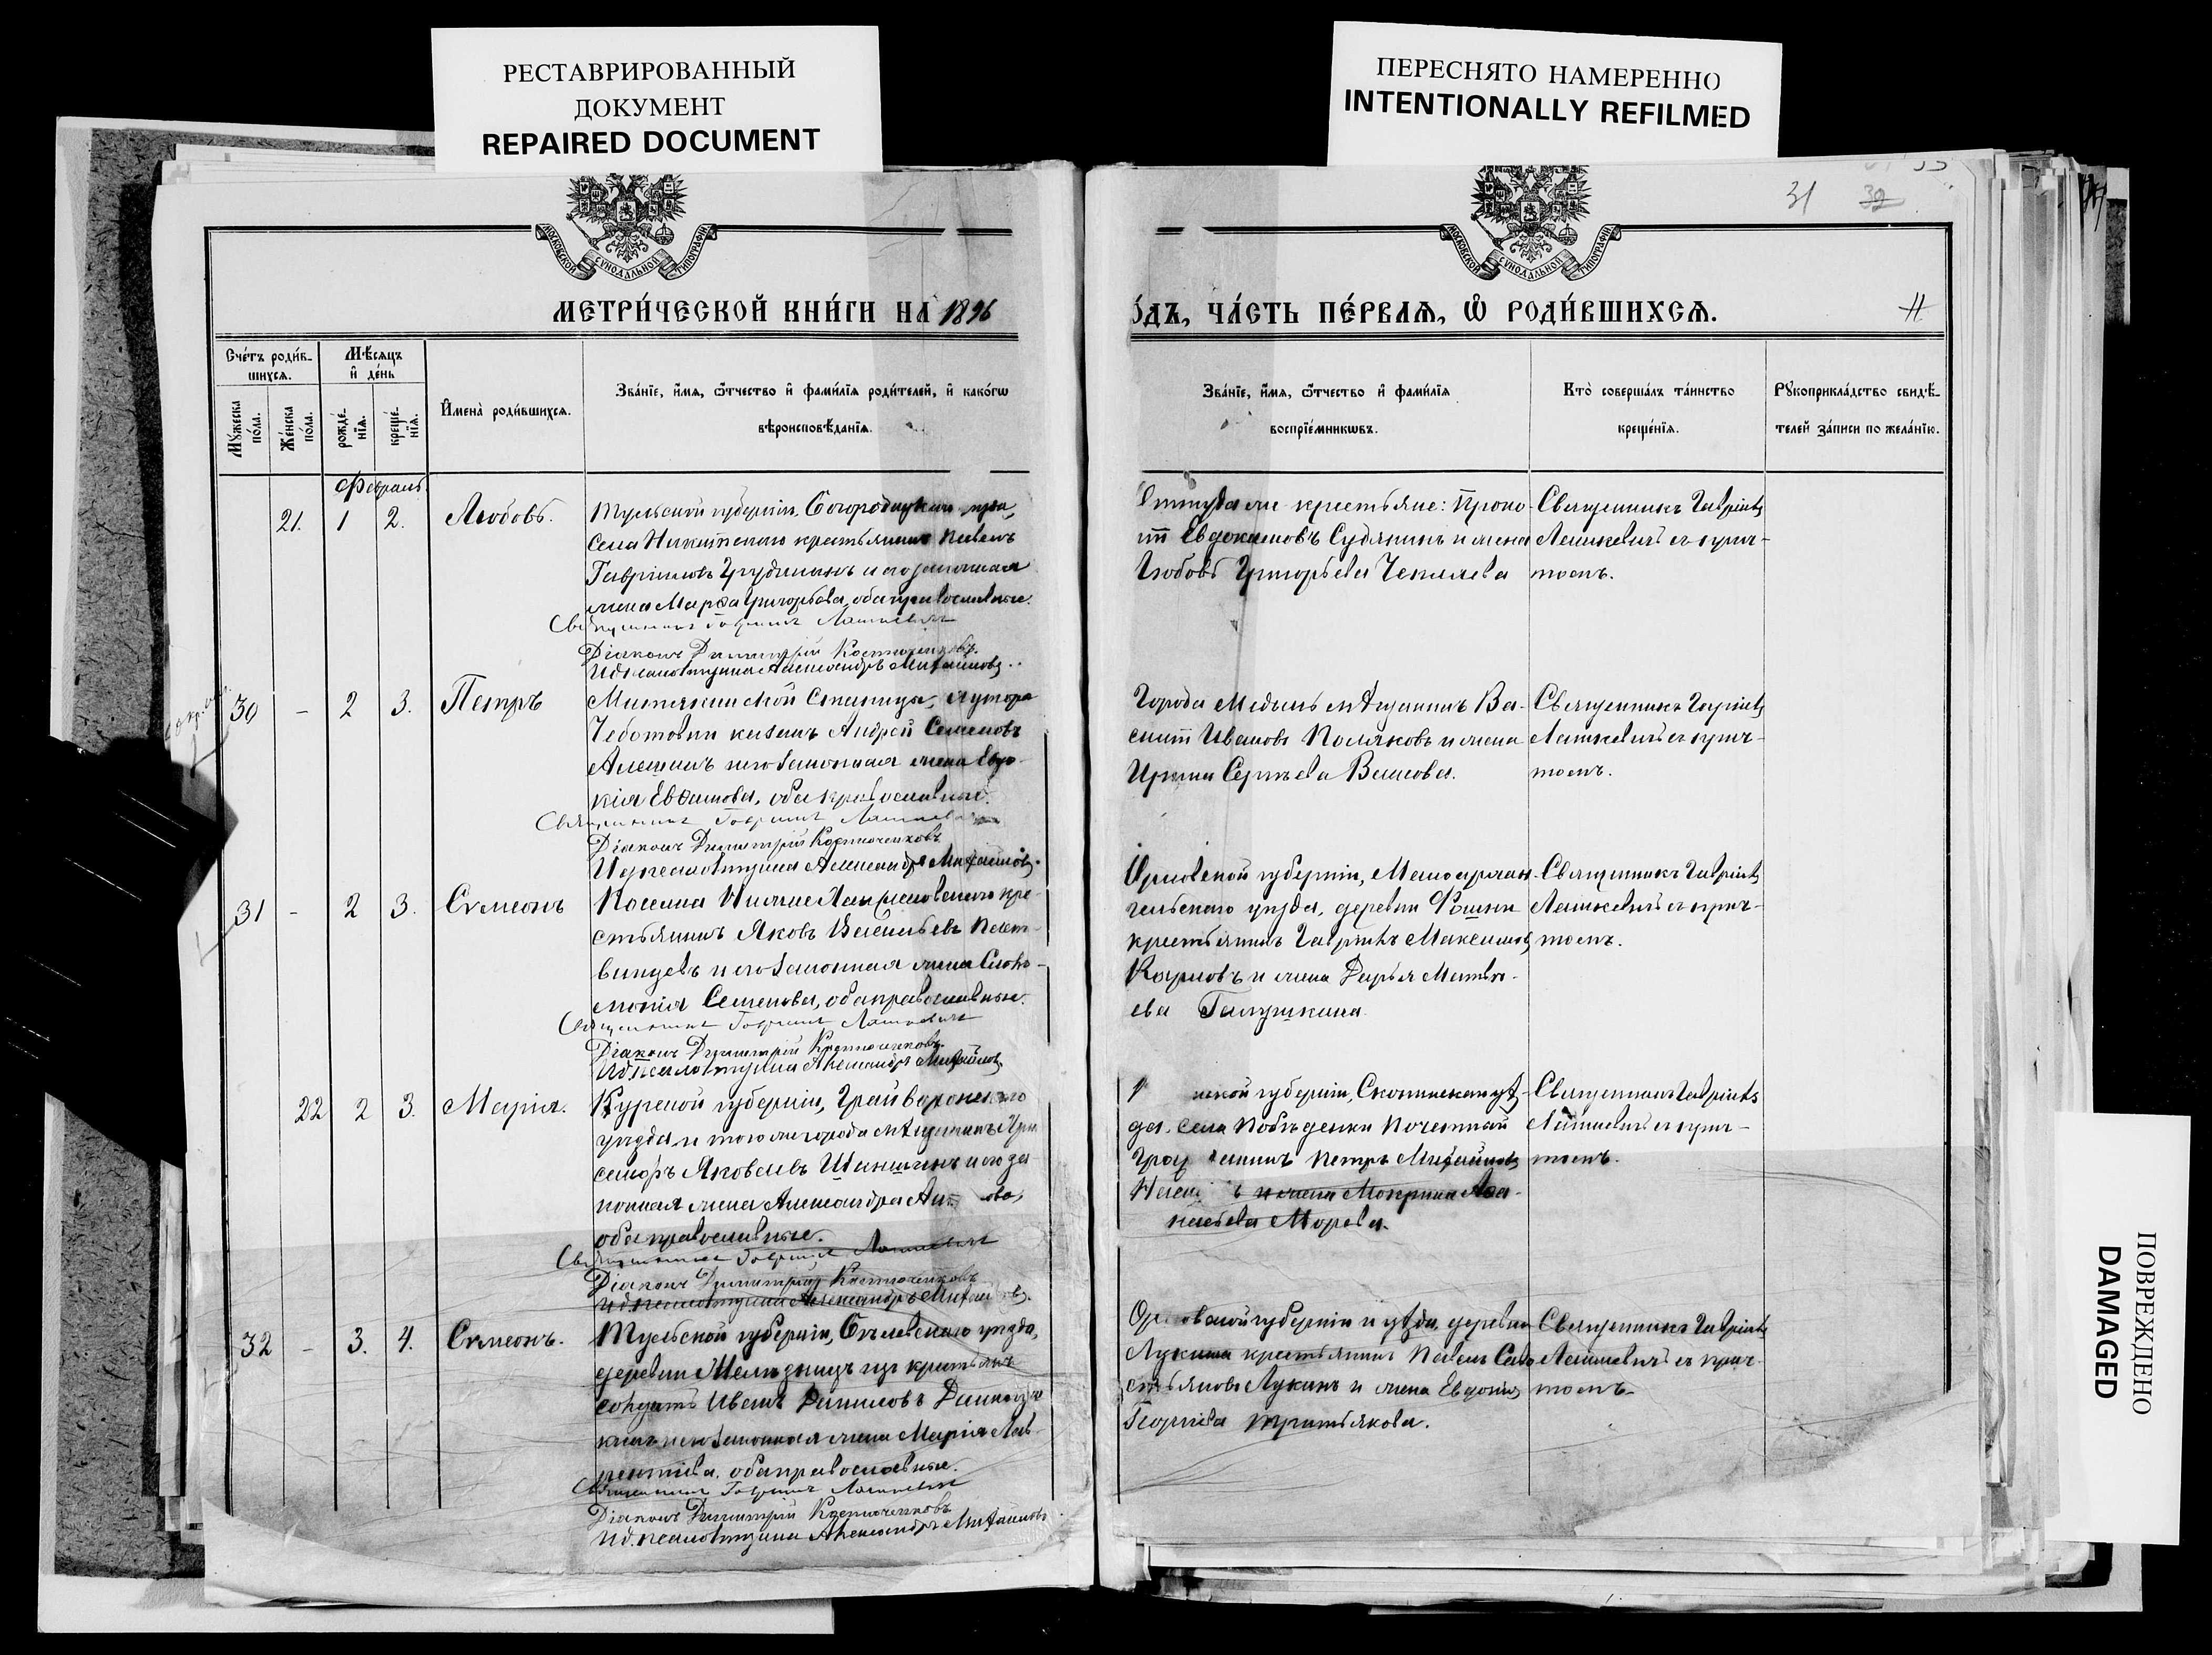 РЕСТАВРИРОВАННЫЙ
ДОКУМЕНТ
REPAIRED DOCUMENT
ПЕРЕСНЯТО НАМЕРЕННО
INTENTIONALLY REFILMED
31 32
МОСКОВСКОЙ СѴНОДАЛЬНОЙ ТИПОГРАФІИ
МОСКОВСКОЙ СѴНОДАЛЬНОЙ ТИПОГРАФІИ
МЕТРИ́ЧЕСКОЙ КНИ́ГИ НА 1896
ОДЪ, ЧА́СТЬ ПЕ́РВАѦ, Ѡ РОДИ́ВШИХСѦ.
Сче́тъ роди́в-
шихся.
Мѣ́сяцъ
и де́нь
Му́жеска по́ла.
Же́нска по́ла.
рожде́нїя.
креще́нїя.
Имена̀ роди́вшихся.
Зва́нїе, и́мя, ѻ́тчество и фами́лїя роди́телей, и како́гѡ
вѣроисповѣ́данїя.
Зва́нїе, и́мя, ѻ́тчество и фами́лїя
воспрїе́мникѡвъ.
Кто̀ соверша́лъ та́инство
креще́нїя.
Рꙋкоприкла́дство свидѣ́-
телей за́писи по жела́нїю.
Февраль.
21. 1 2. Любовь.
Тульской губерніи, Богородицкаго уѣзда,
села Никитскаго крестьянинъ Павелъ
Гавріиловъ и его законная
жена Марѳа Григорьева, оба православные.
Священникъ Гавріилъ Лашкевичъ
Діаконъ Димитрій Костюченковъ
И. д. псаломщика Александръ Михайловъ.
крестьяне: Проко-
пій Евдокимовъ Судякинъ и жена
Любовь Григорьева Чепляева
Священникъ Гавріилъ
Лашкевичъ съ прич-
томъ.
30 - 2 3. Петръ
Митякинской Станицы, хутора
казакъ Андрей Семеновъ
Алешинъ и его законная жена Евдо-
кія Евѳимова, оба православные.
Священникъ Гавріилъ Лашкевичъ
Діаконъ Димитрій Костюченковъ
И. д. псаломщика Александръ Михайловъ.
Города Медынь мѣщанинъ Ва-
силій Ивановъ Поляковъ и жена
Ирина Сергѣева
Священникъ Гавріилъ
Лашкевичъ съ прич-
томъ.
31 - 2 3. Сѵмеонъ
кре-
стьянинъ Яковъ Васильевъ
и его законная жена Соло-
монія Семенова, оба православные.
Священникъ Гавріилъ Лашкевичъ
Діаконъ Димитрій Костюченковъ
И. д. псаломщика Александръ Михайловъ.
Орловской губерніи, Малоархан-
гельскаго уѣзда, деревни Фошни
крестьянинъ Гавріилъ Максимовъ
Карповъ и жена Дарья Матвѣ-
ева Галушкина.
Священникъ Гавріилъ
Лашкевичъ съ прич-
томъ.
22 2 3. Марія.
Курской губерніи, Грайворонскаго
уѣзда и того же города мѣщанинъ Хри-
санфъ Яковлевъ Шиншинъ и его за-
конная жена Александра
оба православные.
Священникъ Гавріилъ Лашкевичъ
Діаконъ Димитрій Костюченковъ
И. д. псаломщика Александръ Михайловъ.
ской губерніи, Скопинскаго уѣз-
да, села Побѣденки Почетный
Петръ Михайловъ
и жена Мокрина Аѳа-
насьева Морева.
Священникъ Гавріилъ
Лашкевичъ съ прич-
томъ.
32 - 3. 4. Сѵмеонъ.
Тульской губерніи, Бѣлевскаго уѣзда,
деревни изъ крестьянъ
солдатъ Иванъ Даниловъ
и его законная жена Марія Лав-
рентіева, оба православные.
Священникъ Гавріилъ Лашкевичъ
Діаконъ Димитрій Костюченковъ
И. д. псаломщика Александръ Михайловъ
Орловской губерніи и уѣзда, деревни
Лукина крестьянинъ Павелъ Сева-
стьяновъ Лукинъ и жена Евдокія
Георгіева Третьякова.
Священникъ Гавріилъ
Лашкевичъ съ прич-
томъ.
ПОВРЕЖДЕНО
DAMAGED